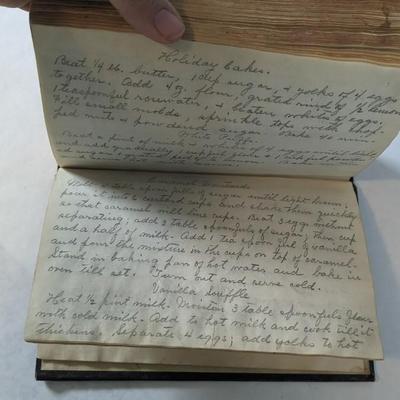 Holiday Cakes.
Beat 1/4 lb. butter, 1 cup sugar, & yolks of 4 eggs
together. Add 4 oz. flour, grated rind of 1/2 lemon
1 teaspoonful rosewater, & beaten whites of eggs.
Fill small molds, sprinkle tops with chop-
ped nuts & powdered sugar. Bake 40 min.
White Puffs.
Beat a pint of milk & whites of 4 eggs
and add gradually 1 cupful
Caramel Custards
Melt 4 table spoonfuls of sugar until light brown;
pour it into 6 custard cups and shake them quickly
so that caramel will line cups. Beat 3 eggs without
separating; add 3 table spoonfuls of sugar, then cup
and a half of milk. Add 1 tea spoonful of vanilla
and pour the mixture in the cups on top of caramel.
Stand in baking pan of hot water and bake in
oven till set. Turn out and serve cold.
Vanilla Souffle
Heat 1/2 pint milk. Moisten 3 table spoonfuls flour
with cold milk. Add to hot milk and cook till it
thickens. Separate 4 eggs; add yolks to hot